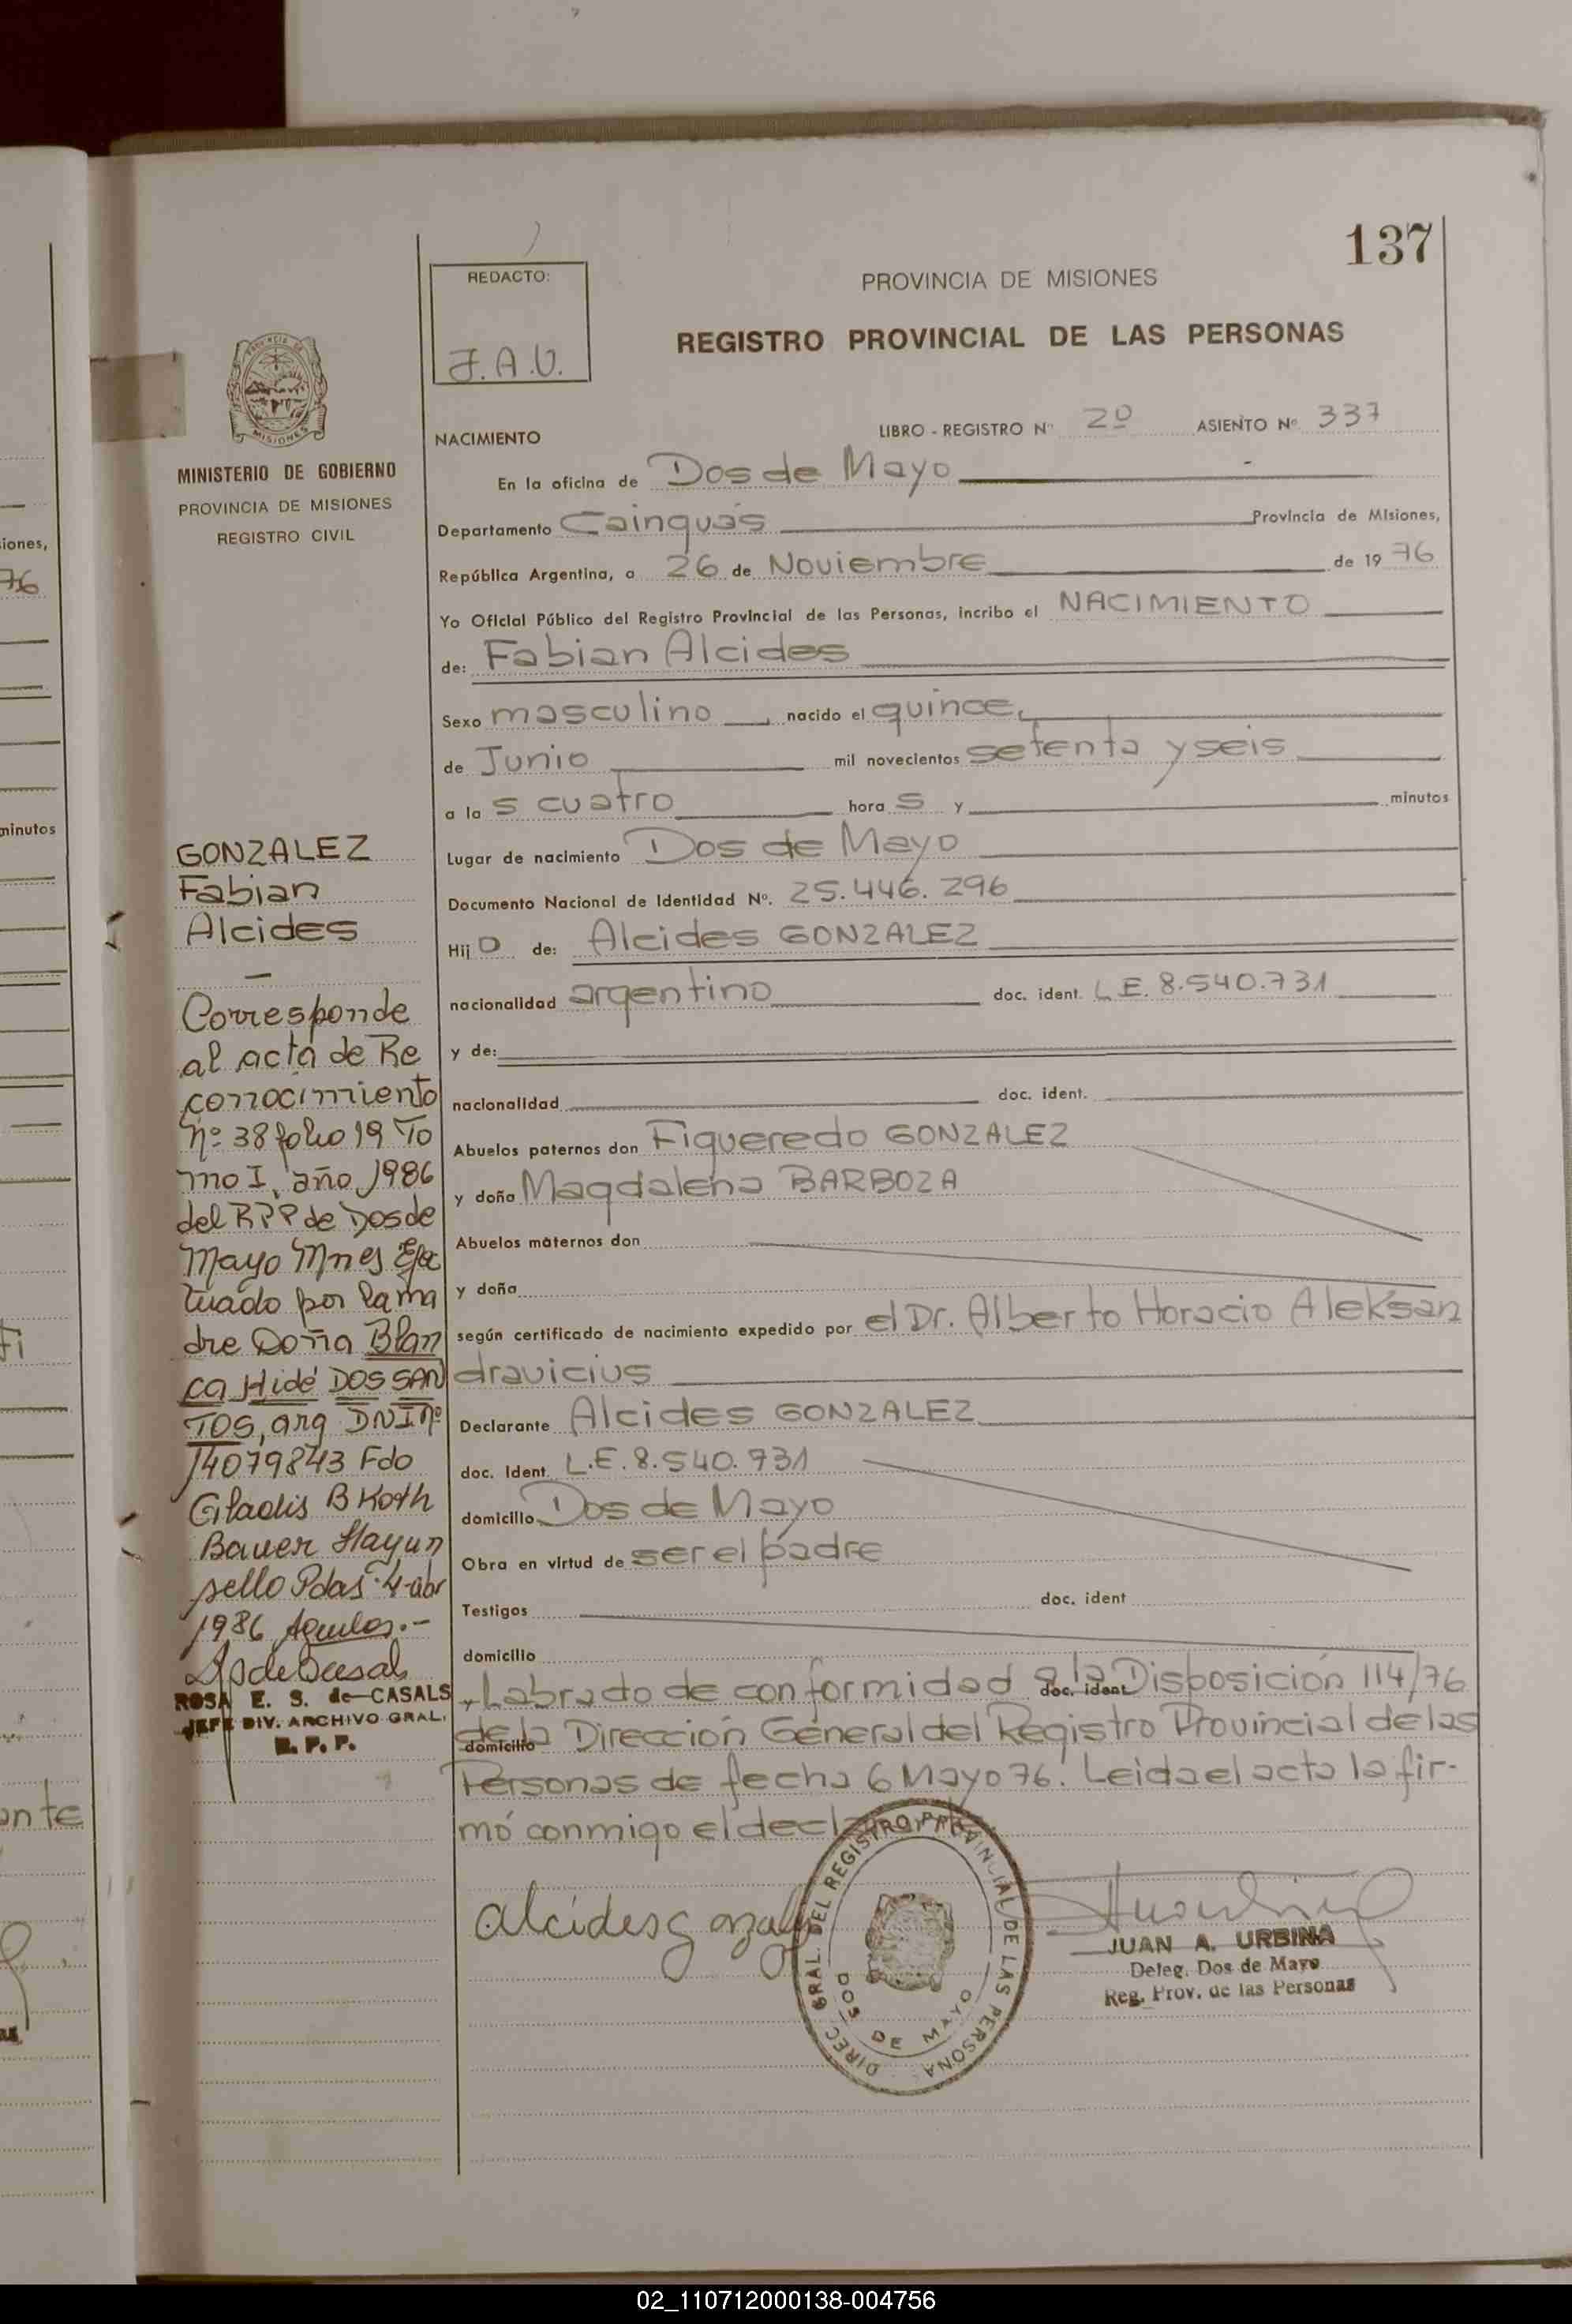 137
REDACTO:
J.A.U.
PROVINCIA DE MISIONES
REGISTRO PROVINCIAL DE LAS PERSONAS
MISIONES
MINISTERIO DE GOBIERNO
PROVINCIA DE MISIONES
REGISTRO CIVIL
NACIMIENTO
LIBRO - REGISTRO Nº 2º ASIENTO Nº 337
En la oficina de Dos de Mayo
Departamento Cainguás Provincia de Misiones,
República Argentina, a 26 de Noviembre de 1976
Yo Oficial Público del Registro Provincial de las Personas, incribo el NACIMIENTO
de: Fabian Alcides
Sexo masculino nacido el quince,
de Junio mil novecientos setenta y seis
a las cuatro horas y minutos
Lugar de nacimiento Dos de Mayo
Documento Nacional de Identidad Nº. 25.446.296
Hijo de: Alcides GONZALEZ
nacionalidad argentino doc. ident. L.E. 8.540.731
y de:
nacionalidad doc. ident.
Abuelos paternos don Figueredo GONZALEZ
y doña Magdalena BARBOZA
Abuelos maternos don
y doña
según certificado de nacimiento expedido por el Dr. Alberto Horacio Aleksan
dravicius
Declarante Alcides GONZALEZ
doc. Ident. L.E. 8.540.731
domicilio Dos de Mayo
Obra en virtud de ser el padre
Testigos doc. ident
domicilio
Labrado de conformidad a la Disposición 114/76
doc. ident
de la Dirección General del Registro Provincial de las
domicilio
Personas de fecha 6 Mayo 76. Leida el acta la fir-
mó conmigo el
GONZALEZ
Fabian
Alcides
Corresponde
al acta de Re
conocimiento
nº 38 folio 19 To
mo I, año 1986
del RPP de Dos de
Mayo Mnes Efec
tuado por la ma
dre Doña Blan
ca Hidé DOS SAN
TOS, arg DNI nº
14079843 Fdo
Gladis B Koth
Bauer Hay un
sello Pdas 4-abr
1986
ROSA E. S. de CASALS
JEFE DIV. ARCHIVO GRAL.
R. P. P.
alcides gonzalez
DIREC. GRAL. DEL REGISTRO PROVINCIAL DE LAS PERSONA
DOS DE MAYO
JUAN A. URBINA
Deleg. Dos de Mayo
Reg. Prov. de las Personas
iones,
76
minutos
ante
02_110712000138-004756